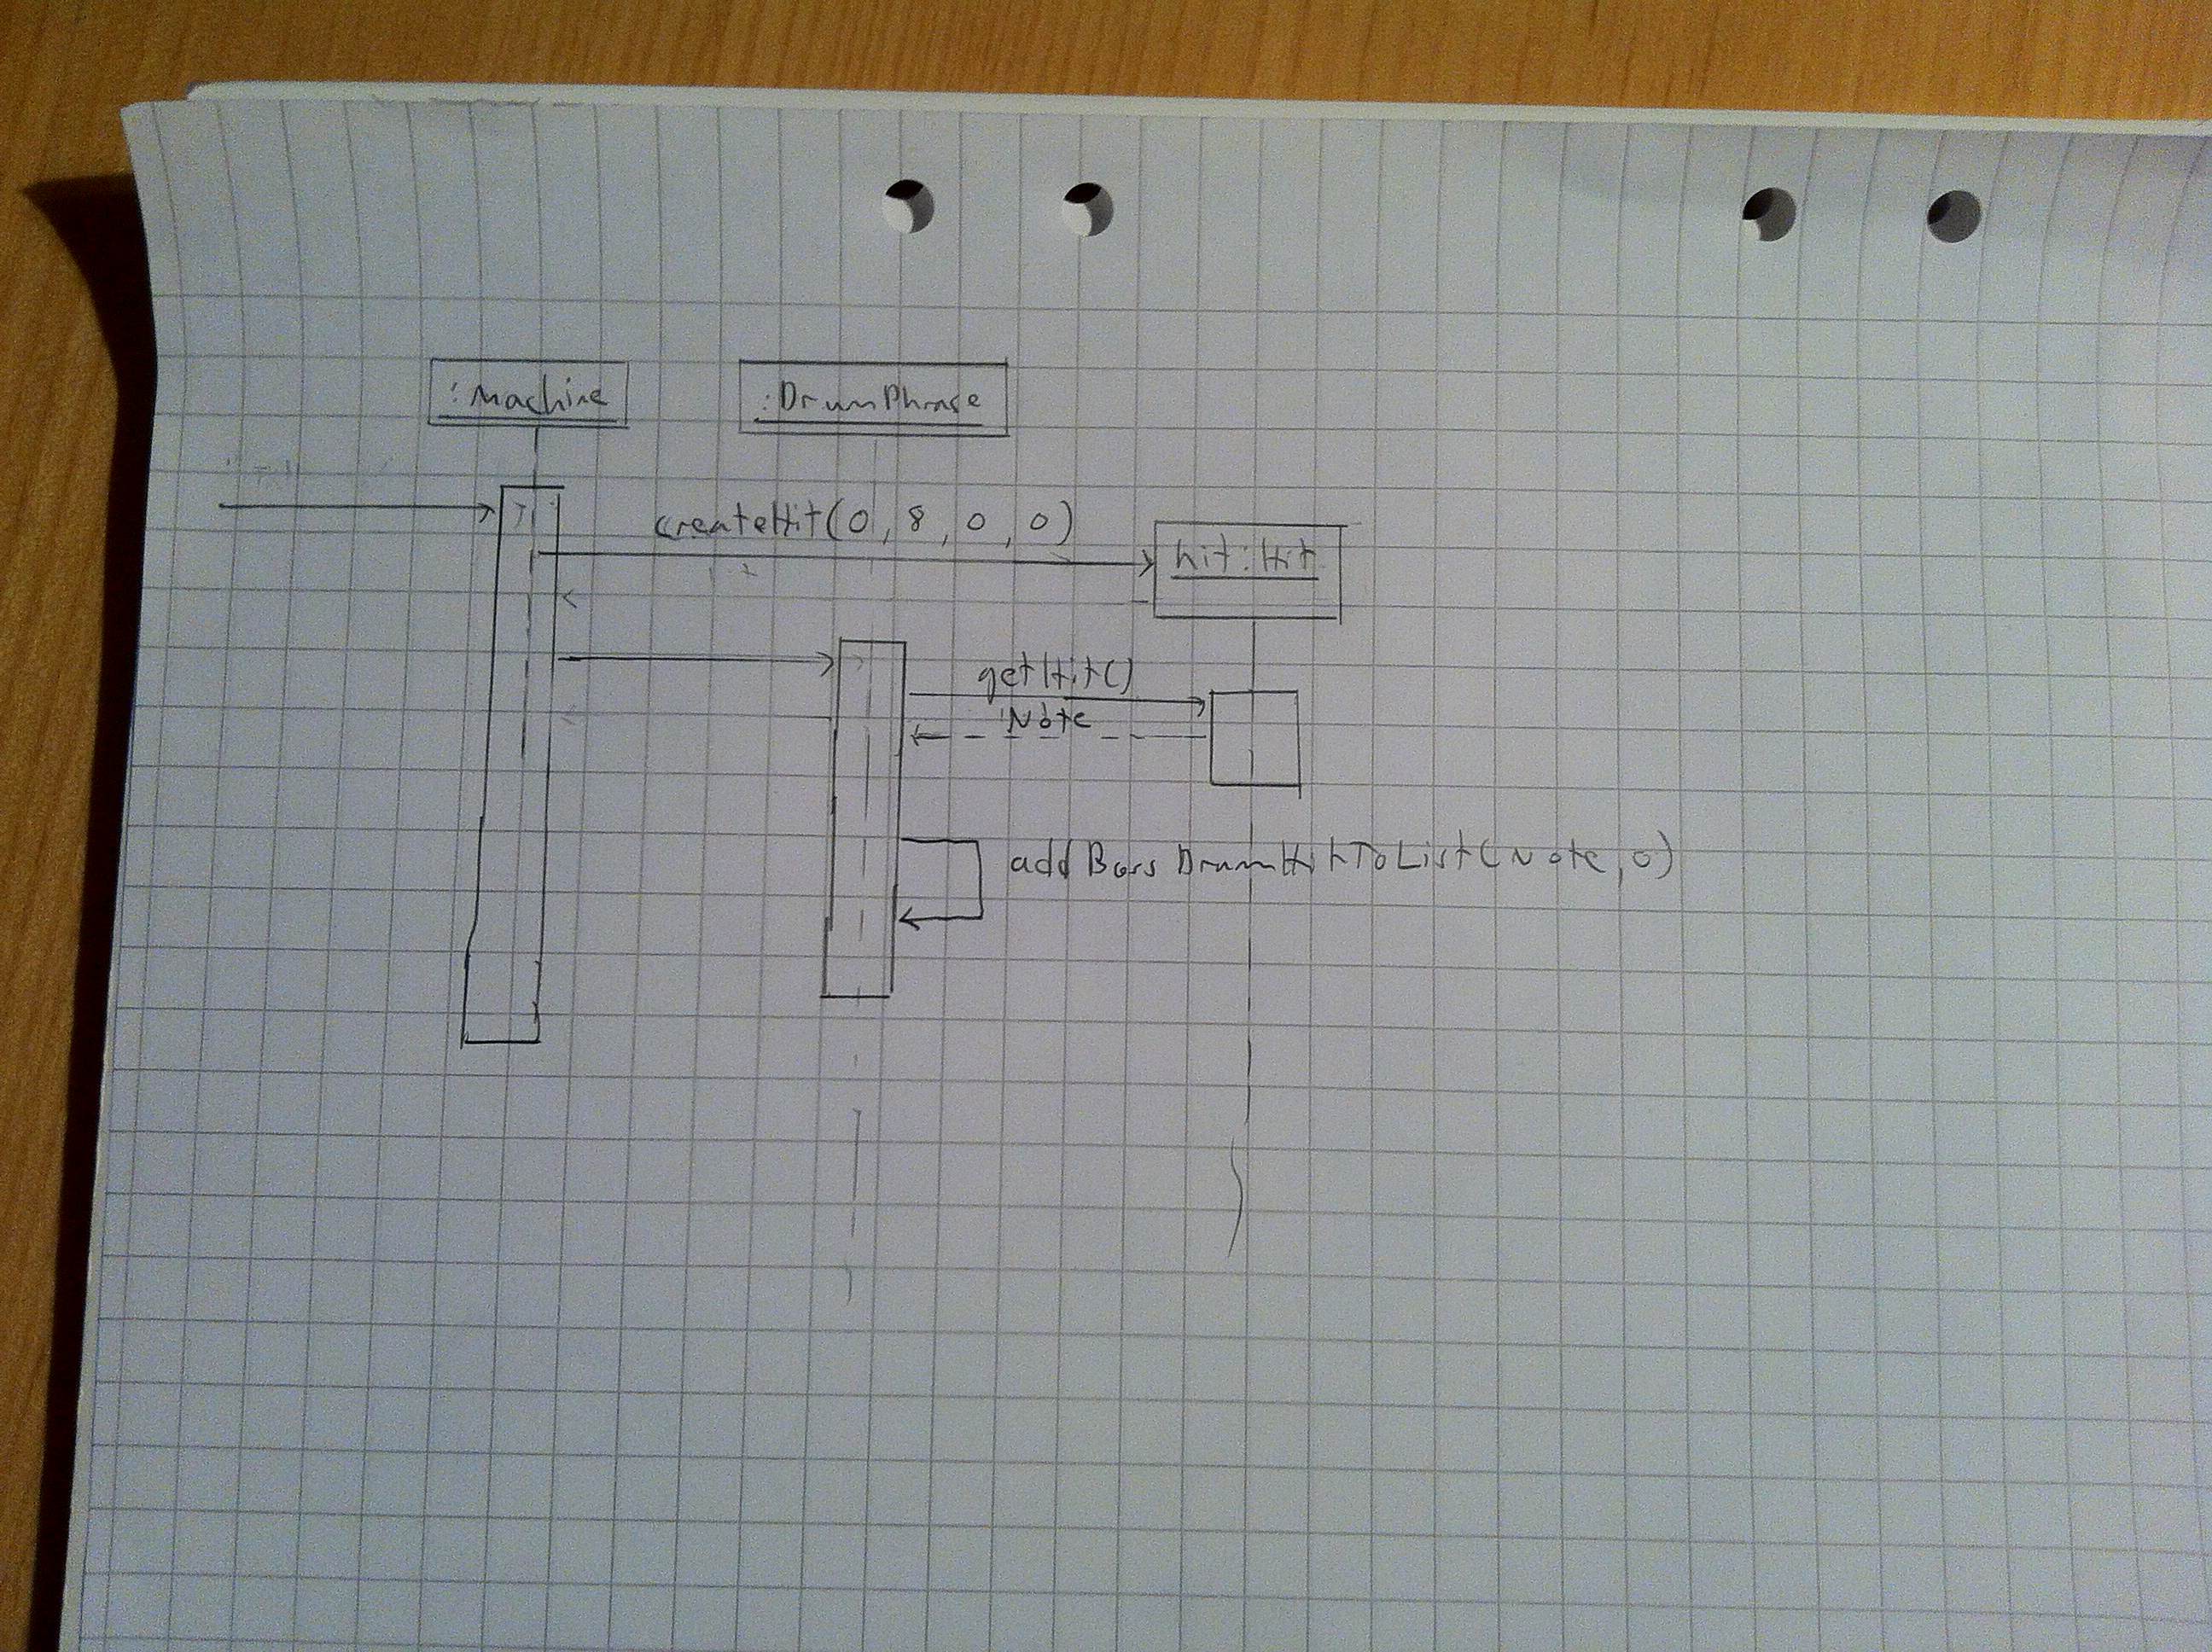 :Machine
:DrumPhrase
createHit(0,8,0,0)
hit:Hit
getHit()
Note
addBassDrumHitToList(Note,0)